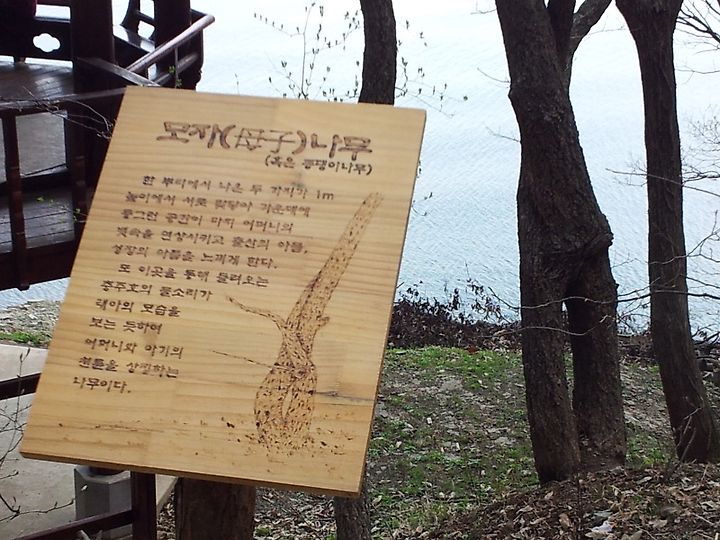 모자(母子)나무
(혹은 궁뎅이나무)
한 뿌리에서 나온 두 가지가 1m
높이에서 서로 맞닿아 가운데에
둥그런 공간이 마치 어머니의
뱃속을 연상시키고 출산의 아픔,
성장의 아픔을 느끼게 한다.
또 이곳을 통해 들려오는
충주호의 물소리가
태아의 모습을
보는 듯하여
어머니와 아기의
연을 상징하는
나무이다.